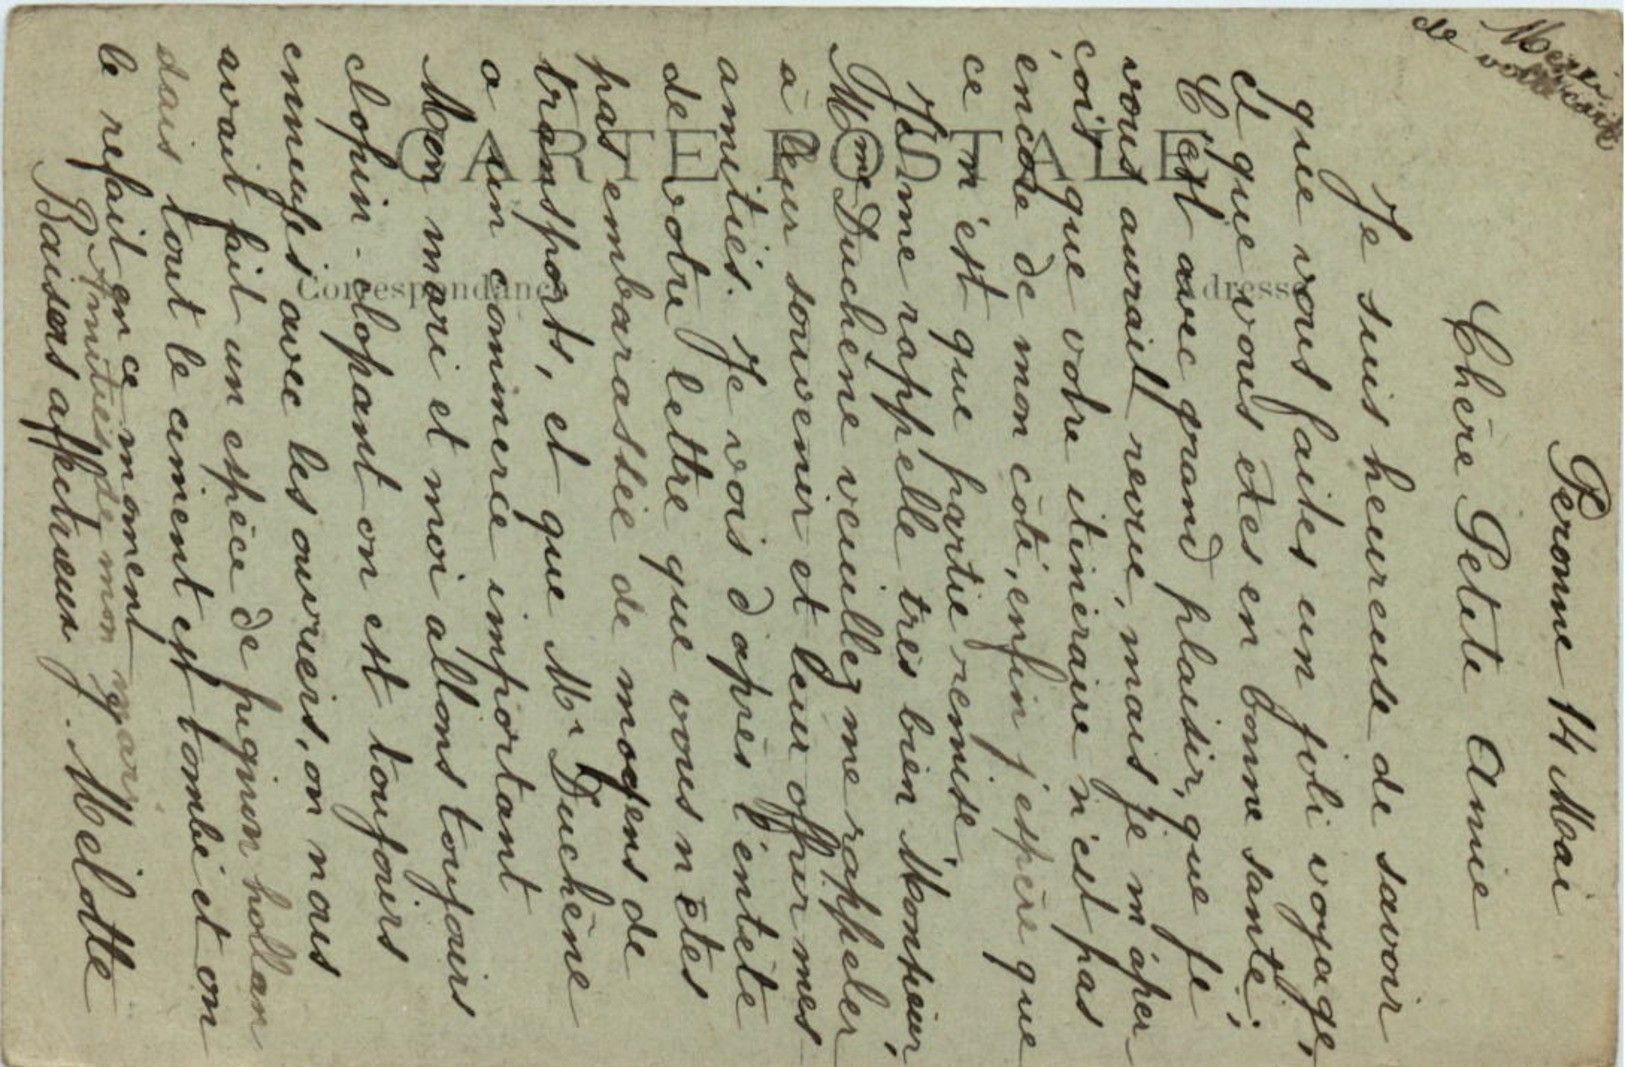 Merci
de votre carte
Peronne 14 Mai
Chère Petite Amie
Je suis heureuse de savoir
que vous faites un joli voyage,
et que vous êtes en bonne santé;
C'est avec grand plaisir, que je
vous aurait revue, mais je m'aper-
çois que votre itinéraire n'est pas
encore de mon coté, enfin j'espère que
ce n'est que partie remise.
Je me rappelle très bien Monsieur,
Mme Duchêne veuillez me rappeler
à leur souvenir et leur offrir mes
amitiés. Je vois d'après l'entête
de votre lettre que vous n'êtes
pas embarassée de moyens de
transports, et que Mr Duchêne
a un commerce important
Mon mari et moi allons toujours
clopin-clopant on est toujours
ennuyés avec les ouvriers, on nous
avait fait un espèce de pignon hollan
dais tout le ciment est tombé et on
le refait en ce moment
Amitiés de mon mari
Baisers affectueux. Mélotte
CARTE POSTALE
Correspondance
Adresse